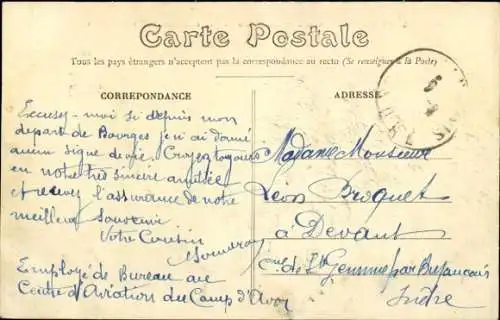 Carte Postale
Tous les pays étrangers n'acceptent pas la correspondance au recto (Se renseigner à la Poste)
CORRESPONDANCE
ADRESSE
Excusez-moi si depuis mon
départ de Bourges je n'ai donné
aucun signe de vie. Croyez toujours
en notre très sincère amitiée
et recevez l'assurance de notre
meilleur souvenir
Votre Cousin
Employé de Bureau au
Centre d'Aviation du Camp d'Avor
Madame Monsieur
Léon Broquet
à Devant
Cne de Ste Gemme par Buzançais
Indre